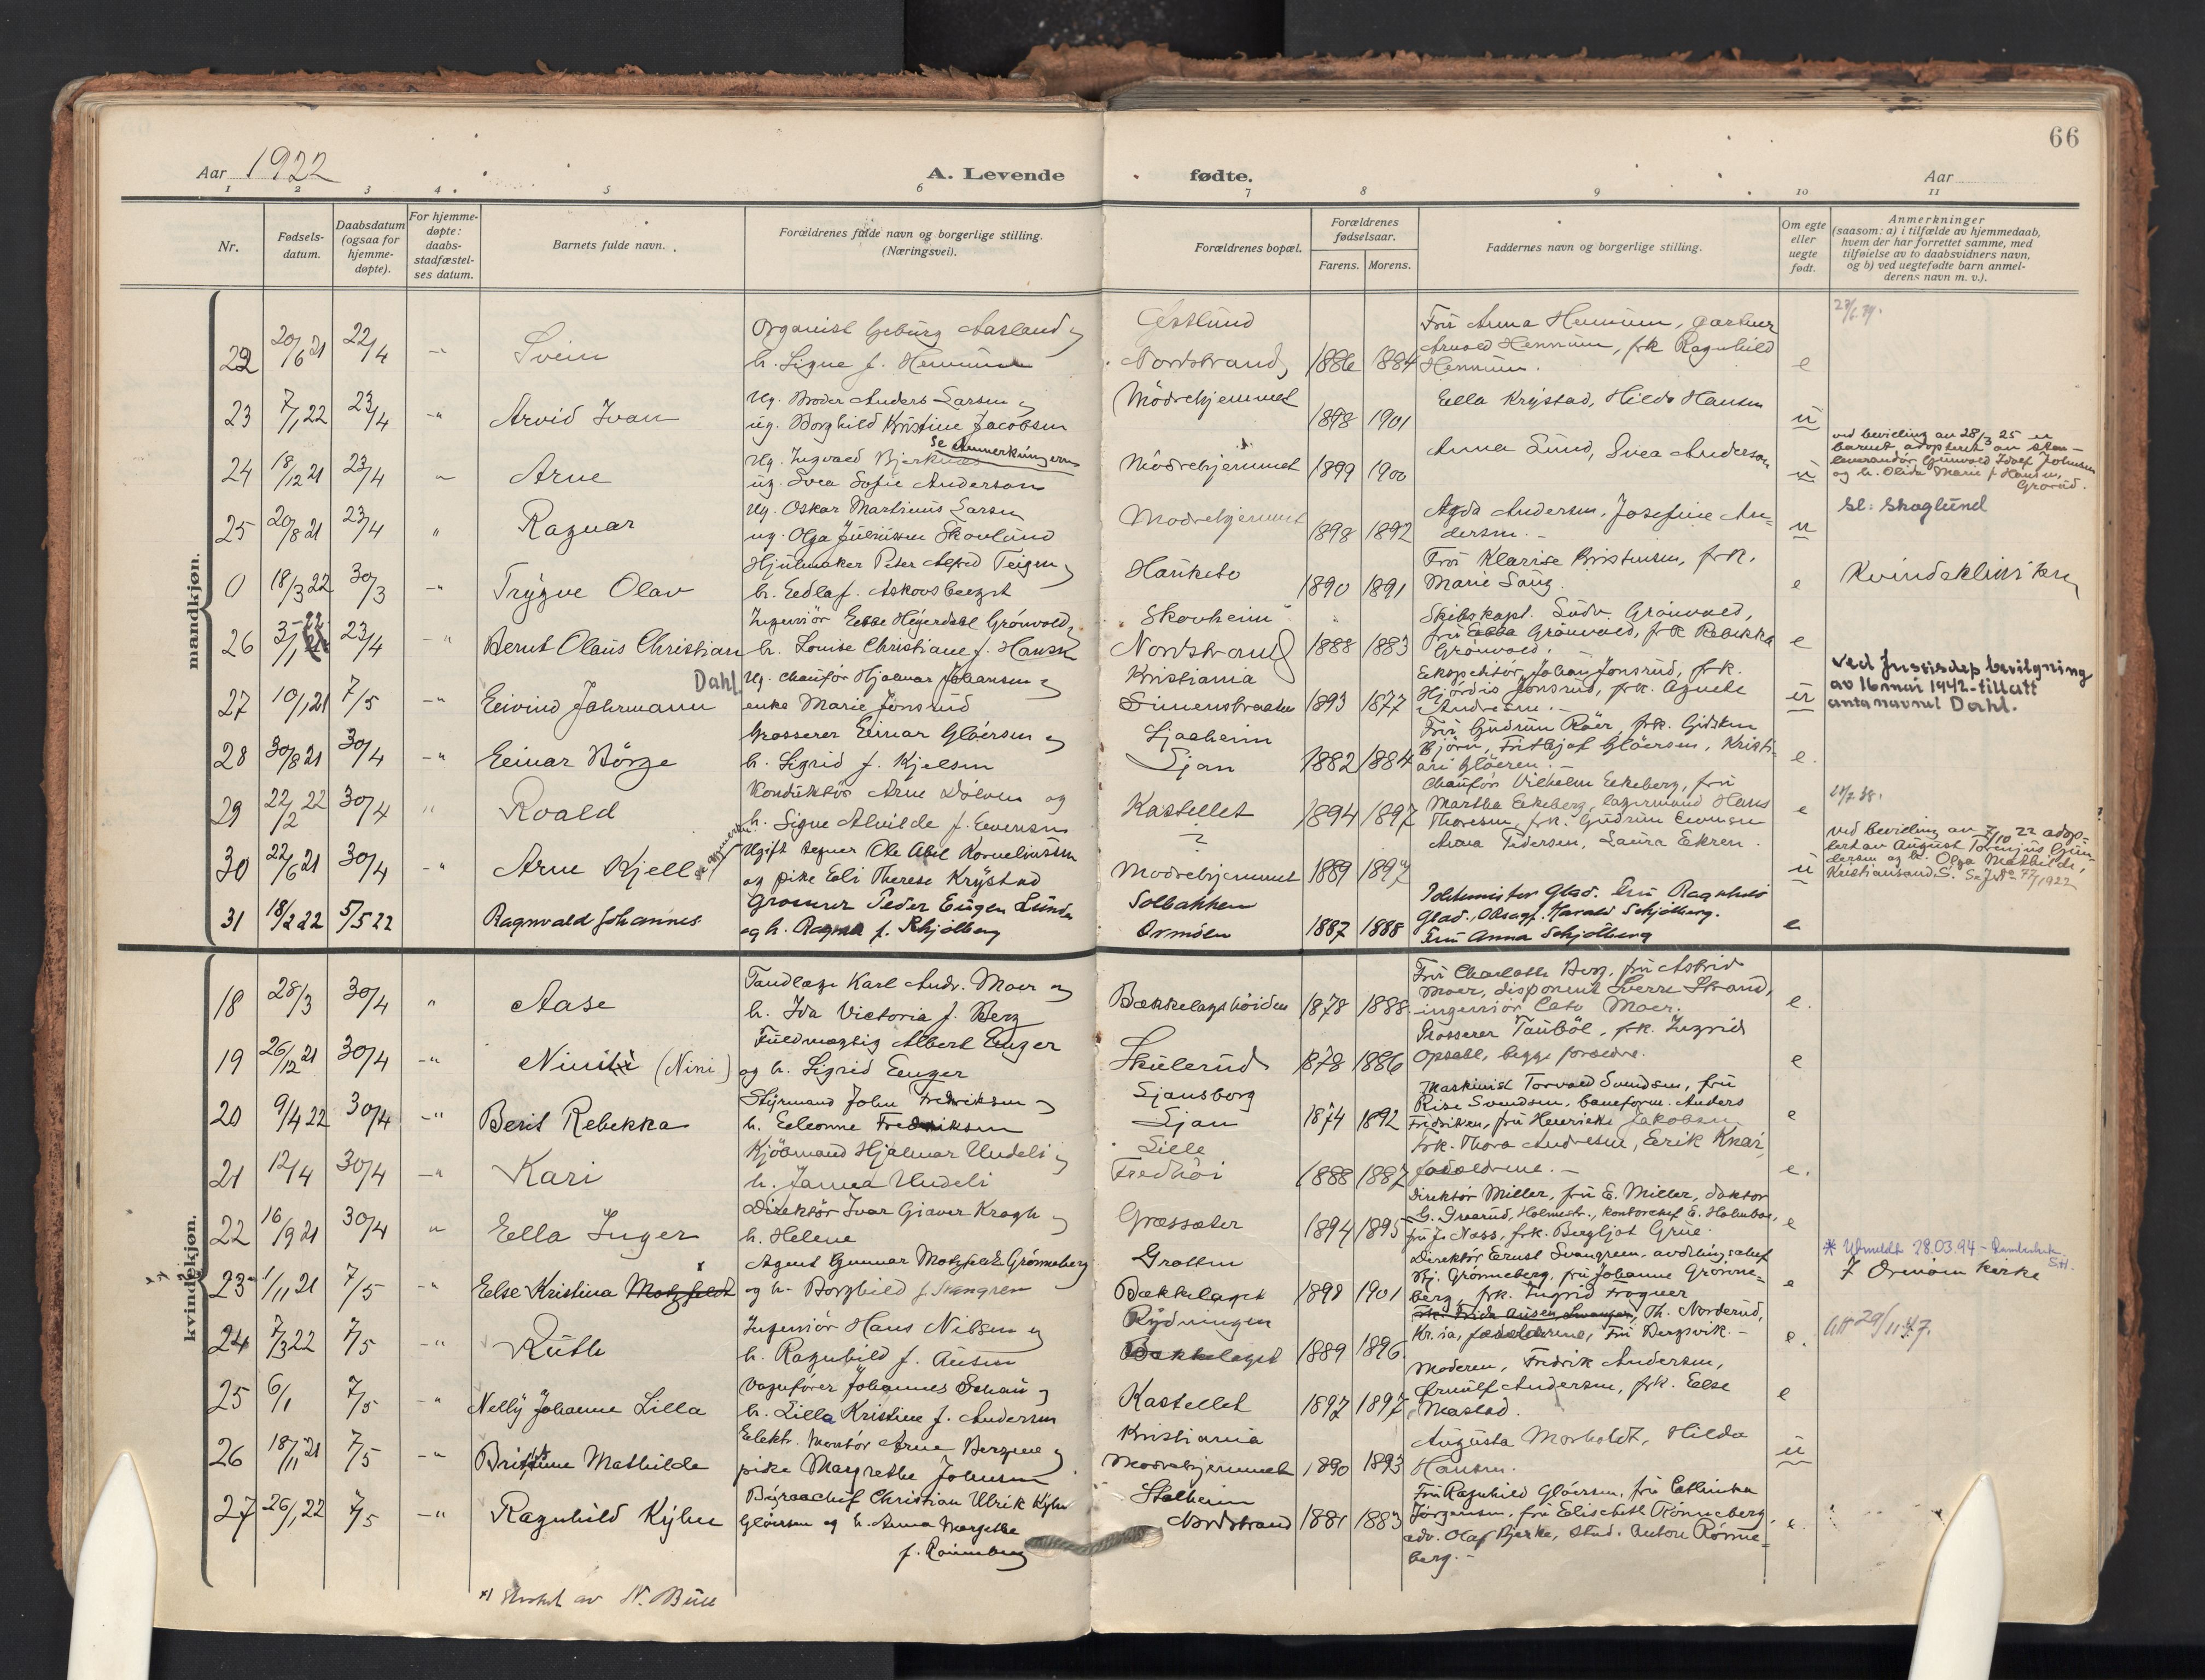 66
Aar 1922
A. Levende fødte.
Aar
1 2 3 4 5 6 7 8 9 10 11
Nr.
Fødsels-
datum.
Daabsdatum
(ogsaa for
hjemme-
døpte).
For hjemme-
døpte:
daabs-
stadfæstel-
ses datum.
Barnets fulde navn.
Forældrenes fulde navn og borgerlige stilling.
(Næringsvei).
Forældrenes bopæl.
Forældrenes
fødselsaar.
Farens. Morens.
Faddernes navn og borgerlige stilling.
Om egte
eller
uegte
født.
Anmerkninger
(saasom: a) i tilfælde av hjemmedaab,
hvem der har forrettet samme, med
tilføielse av to daabsvidners navn,
og b) ved uegtefødte barn anmel-
derens navn m. v.).
mandkjøn.
22 20/6 21 22/4 Svein
Organist Aasland
h. Signe f. Hennum
Nordstrand 1886 1884
Fru Anna Hennum, gartner
Arnold Hennum, frk Ragnhild
Hennum. e
23 7/1 22 23/4 Arvid Ivan
Ug. Anders Larsen
ug. Borghild Kristine Jacobsen
Mödrehjemmet 1898 1901
Ella Krystad, Hilda Hansen u
24 18/12 21 23/4 Arne
Ug. Ingvald Bjerknes
se Anmerkningerne
ug. Svea Sofie Anderson
Mödrehjemmet 1899 1900
Anna Lund, Svea Anderson u
ved bevilling av 28/3 25 er
barnet adopteret av
og h. Olida Marie f. Hansen,
Grorud.
25 20/8 21 23/4 Ragnar
Ug. Oskar Martinus Larsen
ug. Olga Skovlund
Mödrehjemmet 1898 1892
Agda Andersen, Josefine An=
dersen. u
sl: Skoglund
0 18/3 22 30/3 Trygve Olav
Hjulmaker Peter Alfred Teigen
Hauketo 1890 1891
Fru Klarise Kristensen, frk.
Marie Sang. e
Kvindeklinikken
26 3/1 22 23/4 Bernt Olaus Christian
Ingeniör Ebbe Grönvold
h. Louise Christiane f. Hansen
Skovheim
Nordstrand 1888 1883
Skibskapt. Ludv. Grönvold,
fru Ebba Grönvold, frk Rebekka
Grönvold. e
27 10/1 21 7/5 Eivind Jahrmann Dahl
Ug. chaufför Hjalmar Johansen
enke Marie Jonsrud
Kristiania
Simenstraaten 1893 1877
Ekspeditör Johan Jonsrud, frk.
Hjördis Jonsrud, frk. Agnete
Andresen. u
Ved Justisdep bevilgning
av 16 mai 1942 tillatt
anta navnet Dahl.
28 30/8 21 30/4 Einar Börge
Grosserer Einar Glöersen
h. Sigrid f. Kjelsen
Ljaaheim
Ljan 1882 1884
Fru Gudrun Röer, frk. Gidsken
Björn, Fritjof Glöersen, Kristi-
an Glöersen. e.
29 22/2 22 30/4 Roald
Konduktör Arne Dölven og
h. Signe Alvilde f. Evensen
Kastellet 1894 1897
Chaufför Vilhelm Eekeberg, fru
Martha Eekeberg, lagermand Hans
Thoresen, frk. Gudrun Evensen e
30 22/6 21 30/4 Arne Kjell
Ugift tegner Ole Abel Korneliussen
og pike Eli Therese Krystad
?
Mödrehjemmet 1889 1897
Anna Pedersen, Laura Ekren. u
ved bevilling av 7/10 22 adop-
tert av August
h. Olga Mathilde,
Kristiansand S.
31 18/2 22 5/5 22 Ragnvald Johannes
Grosserer Peder Eugen Lunde
og h. Ragna f. Skjölberg
Solbakken
Ormöen 1887 1888
Glad. Fru Ragnhild
Glad., Harald Schjölberg.
Fru Anna Schjölberg e
kvindekjøn.
18 28/3 30/4 Aase
Tandlæge Karl Andr. Moer og
h. Ida Victoria f. Berg
Bækkelagshöiden 1878 1888
Fru Charlotte Berg, fru Astrid
Moer, disponent Sverre Strand,
ingeniör Cato Moer. e.
19 26/12 21 30/4 (Nini)
Fuldmægtig Albert Enger
og h. Sigrid Enger
Skullerud 1878 1886
Grosserer Tauböl, frk. Ingrid
Opsahl, begge forældre. e
20 9/4 22 30/4 Berit Rebekka
Styrmand John Fredriksen
h. Fredriksen
Ljansborg
Ljan 1874 1892
Maskinist Torvald Svendsen, fru
Svendsen, baneform. Anders
Fredriksen, fru Henriette Jakobsen e
21 12/4 30/4 Kari
Kjöbmand Hjalmar Undeli
h. Janna Undeli
Lille
Fredhöi 1888 1887
frk. Thora Andresen, Erik
forældrene. e.
22 16/9 21 30/4 Ella Inger
Direktör Ivar Giæver Krogh
h. Helene
Græssæter 1894 1895
Direktör Miller, fru E. Miller, doktor
fru J. Næss, frk. Bergljot Grue. e
23 1/11 21 7/5 Else Kristina Motzfeldt
Agent Gunnar Motzfeldt Grönneberg
og h. Borghild f. Svangren
Grotten
Bækkelaget 1898 1901
Direktör Ernst Svangreen, avdelingschef
Hj. Grönneberg, fru Johanne Grönne=
berg, frk. Ingrid Frogner e
* Utmeldt 28.03.94
24 7/3 22 7/5 Ruth
Ingeniör Hans Nilsen
h. Ragnhild f. Ausen
Rydningen
Bækkelaget 1889 1896
Th. Norderud,
Kr.ia, forældrene, Fru Bergsvik. e.
att 29/11 47.
25 6/1 7/5 Nelly Johanne Lilla
Vognförer Johannes Schau
h. Lilla Kristine f. Andersen
Kastellet 1897 1897
Moderen, Fredrik Andersen,
Arnulf Andersen, frk. Else
Mastad. e
26 18/11 21 7/5 Mathilde
Elektr. Montör Arne Bergene
pike Margrethe Johnsen
Kristiania
Mödrehjemmet 1890 1893
Augusta Morholdt, Hilda
Hansen. u
27 26/1 22 7/5 Ragnhild Kyhn
Byraachef Christian Ulrik Kyhn
Glöersen og h. Anna Margethe
f. Rönneberg
Stalheim
Nordstrand 1881 1883
Fru Ragnhild Glöersen, fru Cathinka
Jörgensen, fru Elisabeth Rönneberg,
adv. Olaf Bjerke, stud. Anton Rönne=
berg. e.
*) Strøket av N. Bull